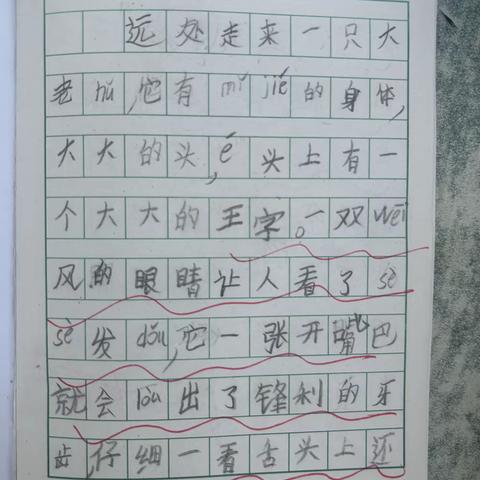 远处走来一只大
老hǔ,它有mǐ jié的身体,
大大的头,é头上有一
个大大的王字。一双wēi
风的眼睛让人看了sè
sè发dǒu,它一张开嘴巴
就会lòu出了锋利的牙
齿,仔细一看舌头上还